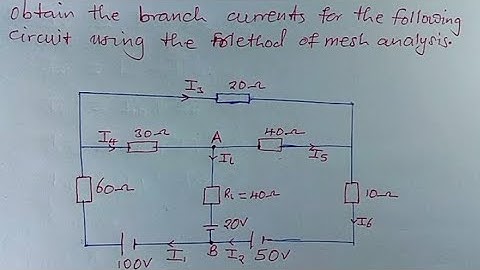 obtain the branch currents for the following
circuit using the Method of mesh analysis.
I3 20Ω
I4 30Ω A 40Ω
IL I5
60Ω RL = 40Ω 10Ω
20V I6
100V I1 B I2 50V